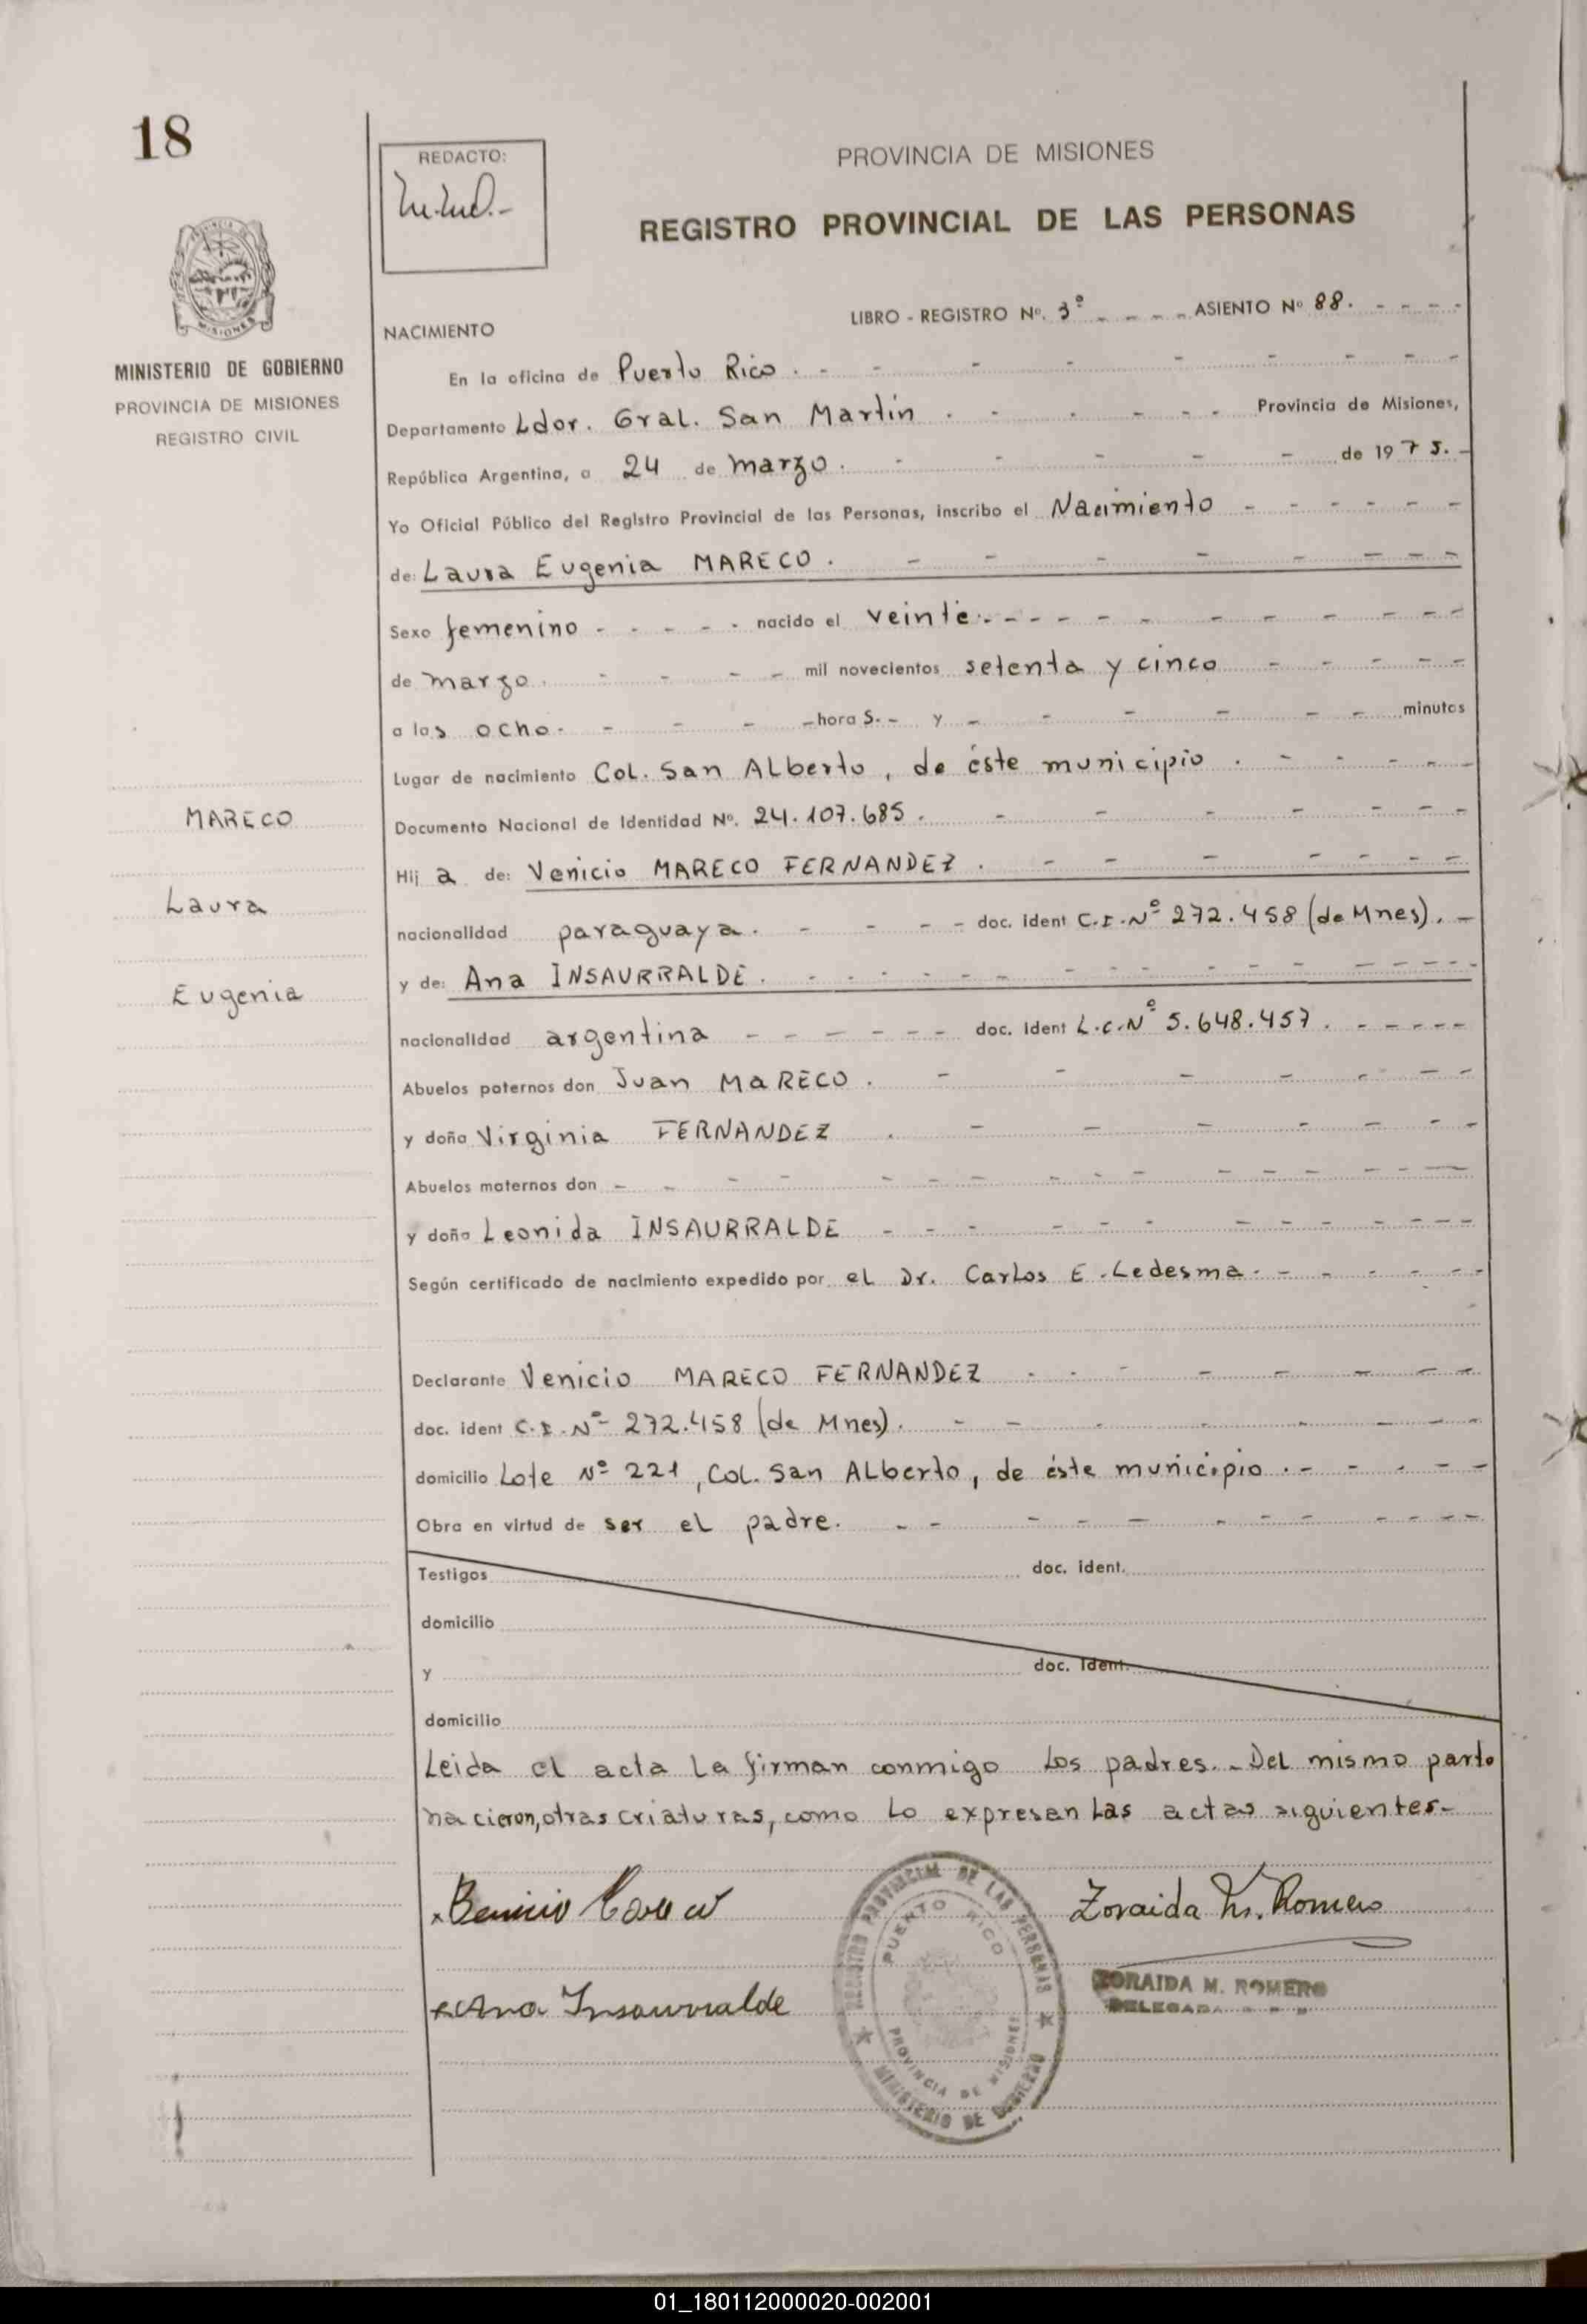 18
REDACTO:
PROVINCIA DE MISIONES
REGISTRO PROVINCIAL DE LAS PERSONAS
MISIONES
MINISTERIO DE GOBIERNO
PROVINCIA DE MISIONES
REGISTRO CIVIL
NACIMIENTO
LIBRO - REGISTRO Nº. 3º - - - - ASIENTO Nº 88. - - - -
En la oficina de Puerto Rico. - - - - - - - -
Departamento Ldor. Gral. San Martín . - . - - - Provincia de Misiones,
República Argentina, a 24 de marzo. - - - - - de 1975. -
Yo Oficial Público del Registro Provincial de las Personas, inscribo el Nacimiento - - - - - -
de: Laura Eugenia MARECO. - - - - - - - -
Sexo femenino - - - - - nacido el veinte. - - - - - - - - - - -
de marzo. - - - - mil novecientos setenta y cinco - - - - -
a las ocho. - - - - hora s. - y - - - - - - minutos
Lugar de nacimiento Col. San Alberto, de éste municipio . - - - - -
Documento Nacional de Identidad Nº. 24.107.685. - - - - - - -
MARECO
Laura
Eugenia
Hij a de: Venicio MARECO FERNANDEZ. - - - - - - -
nacionalidad paraguaya. - - - - doc. ident C.I. Nº 272.458 (de Mnes). -
y de: Ana INSAURRALDE. - - - - - - - - - - - - - -
nacionalidad argentina - - - - - - doc. ident L.C. Nº 5.648.457. - - - - -
Abuelos paternos don Juan MaRECO. - - - - - - -
y doña Virginia FERNANDEZ . - - - - - - -
Abuelos maternos don - - - - - - - - - - - - - -
y doña Leonida INSAURRALDE - - - - - - - - - - - - -
Según certificado de nacimiento expedido por el Dr. Carlos E. Ledesma. - - - - - -
Declarante Venicio MARECO FERNANDEZ . - - - - - - -
doc. ident C.I. Nº 272.458 (de Mnes). - - - - - - - -
domicilio Lote Nº 221, Col. San Alberto, de éste municipio. - - - - -
Obra en virtud de ser el padre. - - - - - - - - - - -
Testigos doc. ident.
domicilio
y doc. ident.
domicilio
Leida el acta la firman conmigo los padres. - Del mismo parto
nacieron, otras criaturas, como lo expresan las actas siguientes. -
Zoraida M. Romero
x Ana Insaurralde
REGISTRO PROVINCIAL DE LAS PERSONAS
PUERTO RICO
PROVINCIA DE MISIONES
MINISTERIO DE GOBIERNO
ZORAIDA M. ROMERO
DELEGADA
01_180112000020-002001